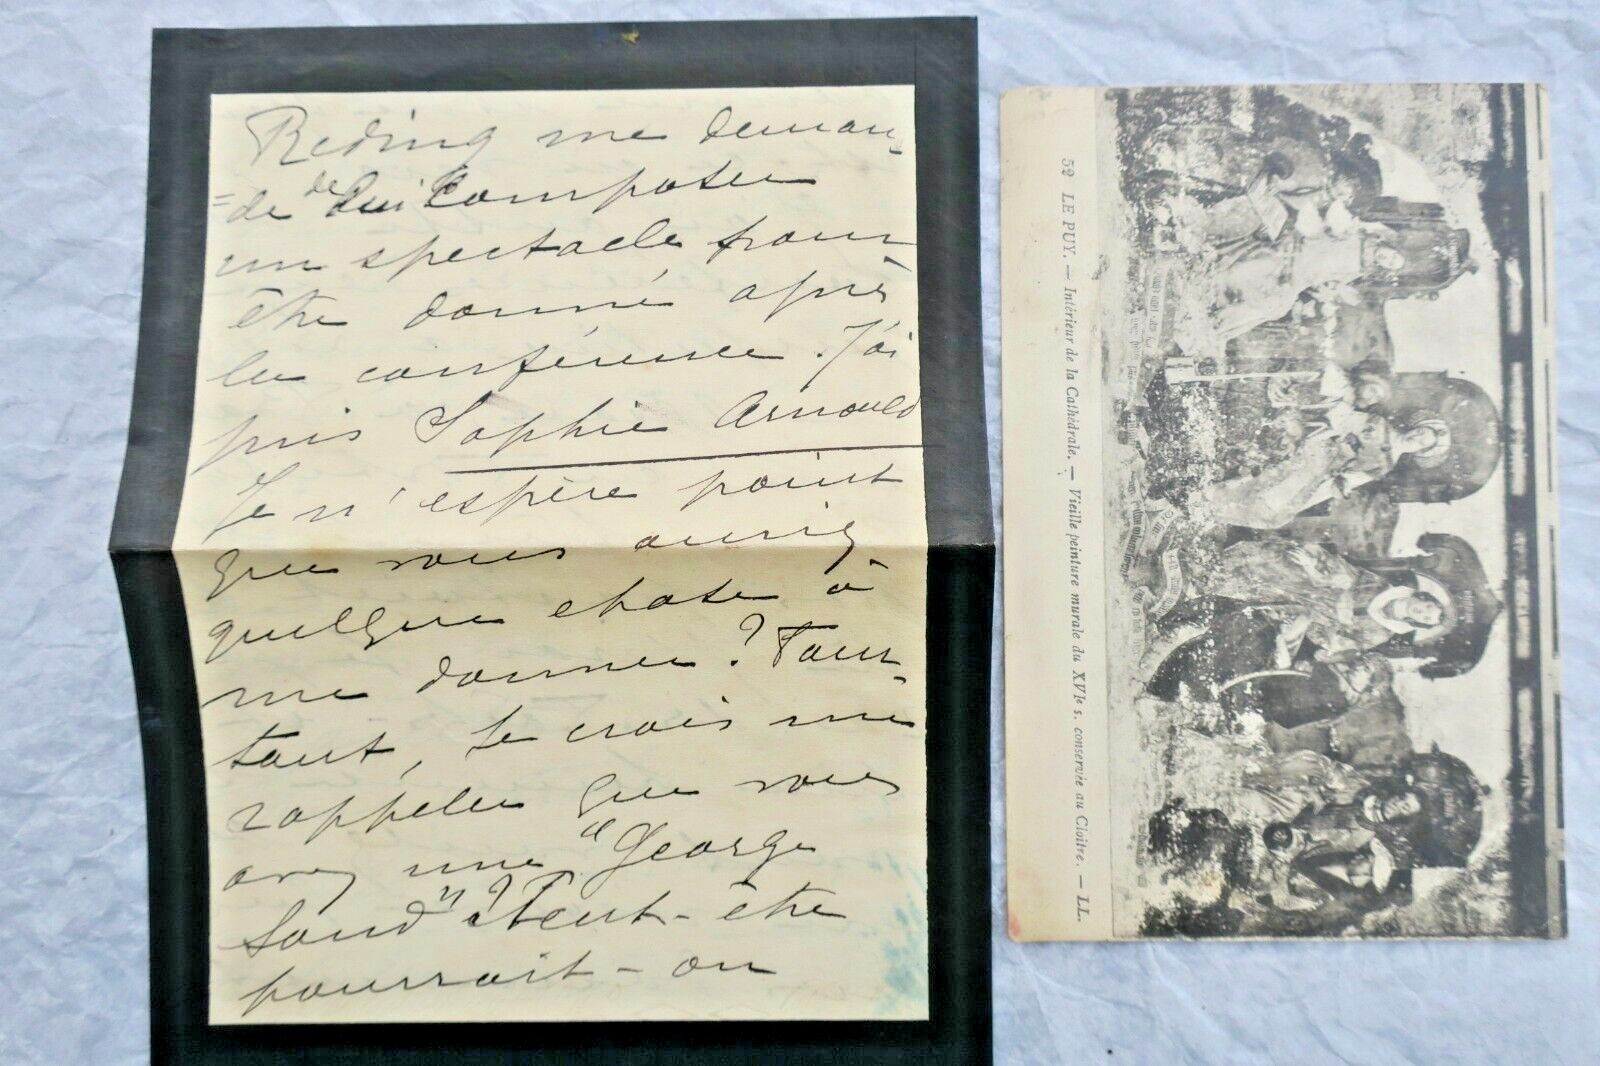 Reding me deman-
=de de lui composer
un spectacle pour
être donné après
la conférence. J'ai
pris Sophie Arnould
Je n'espère point
que vous auriez
quelque chose à
me donner? Pour-
tant, je crois me
rappeler que vous
avez une "George
Sand"? Peut-être
pourrait-on
52 LE PUY. — Intérieur de la Cathédrale. — Vieille peinture murale du XVIe s. conservée au Cloître. — LL.